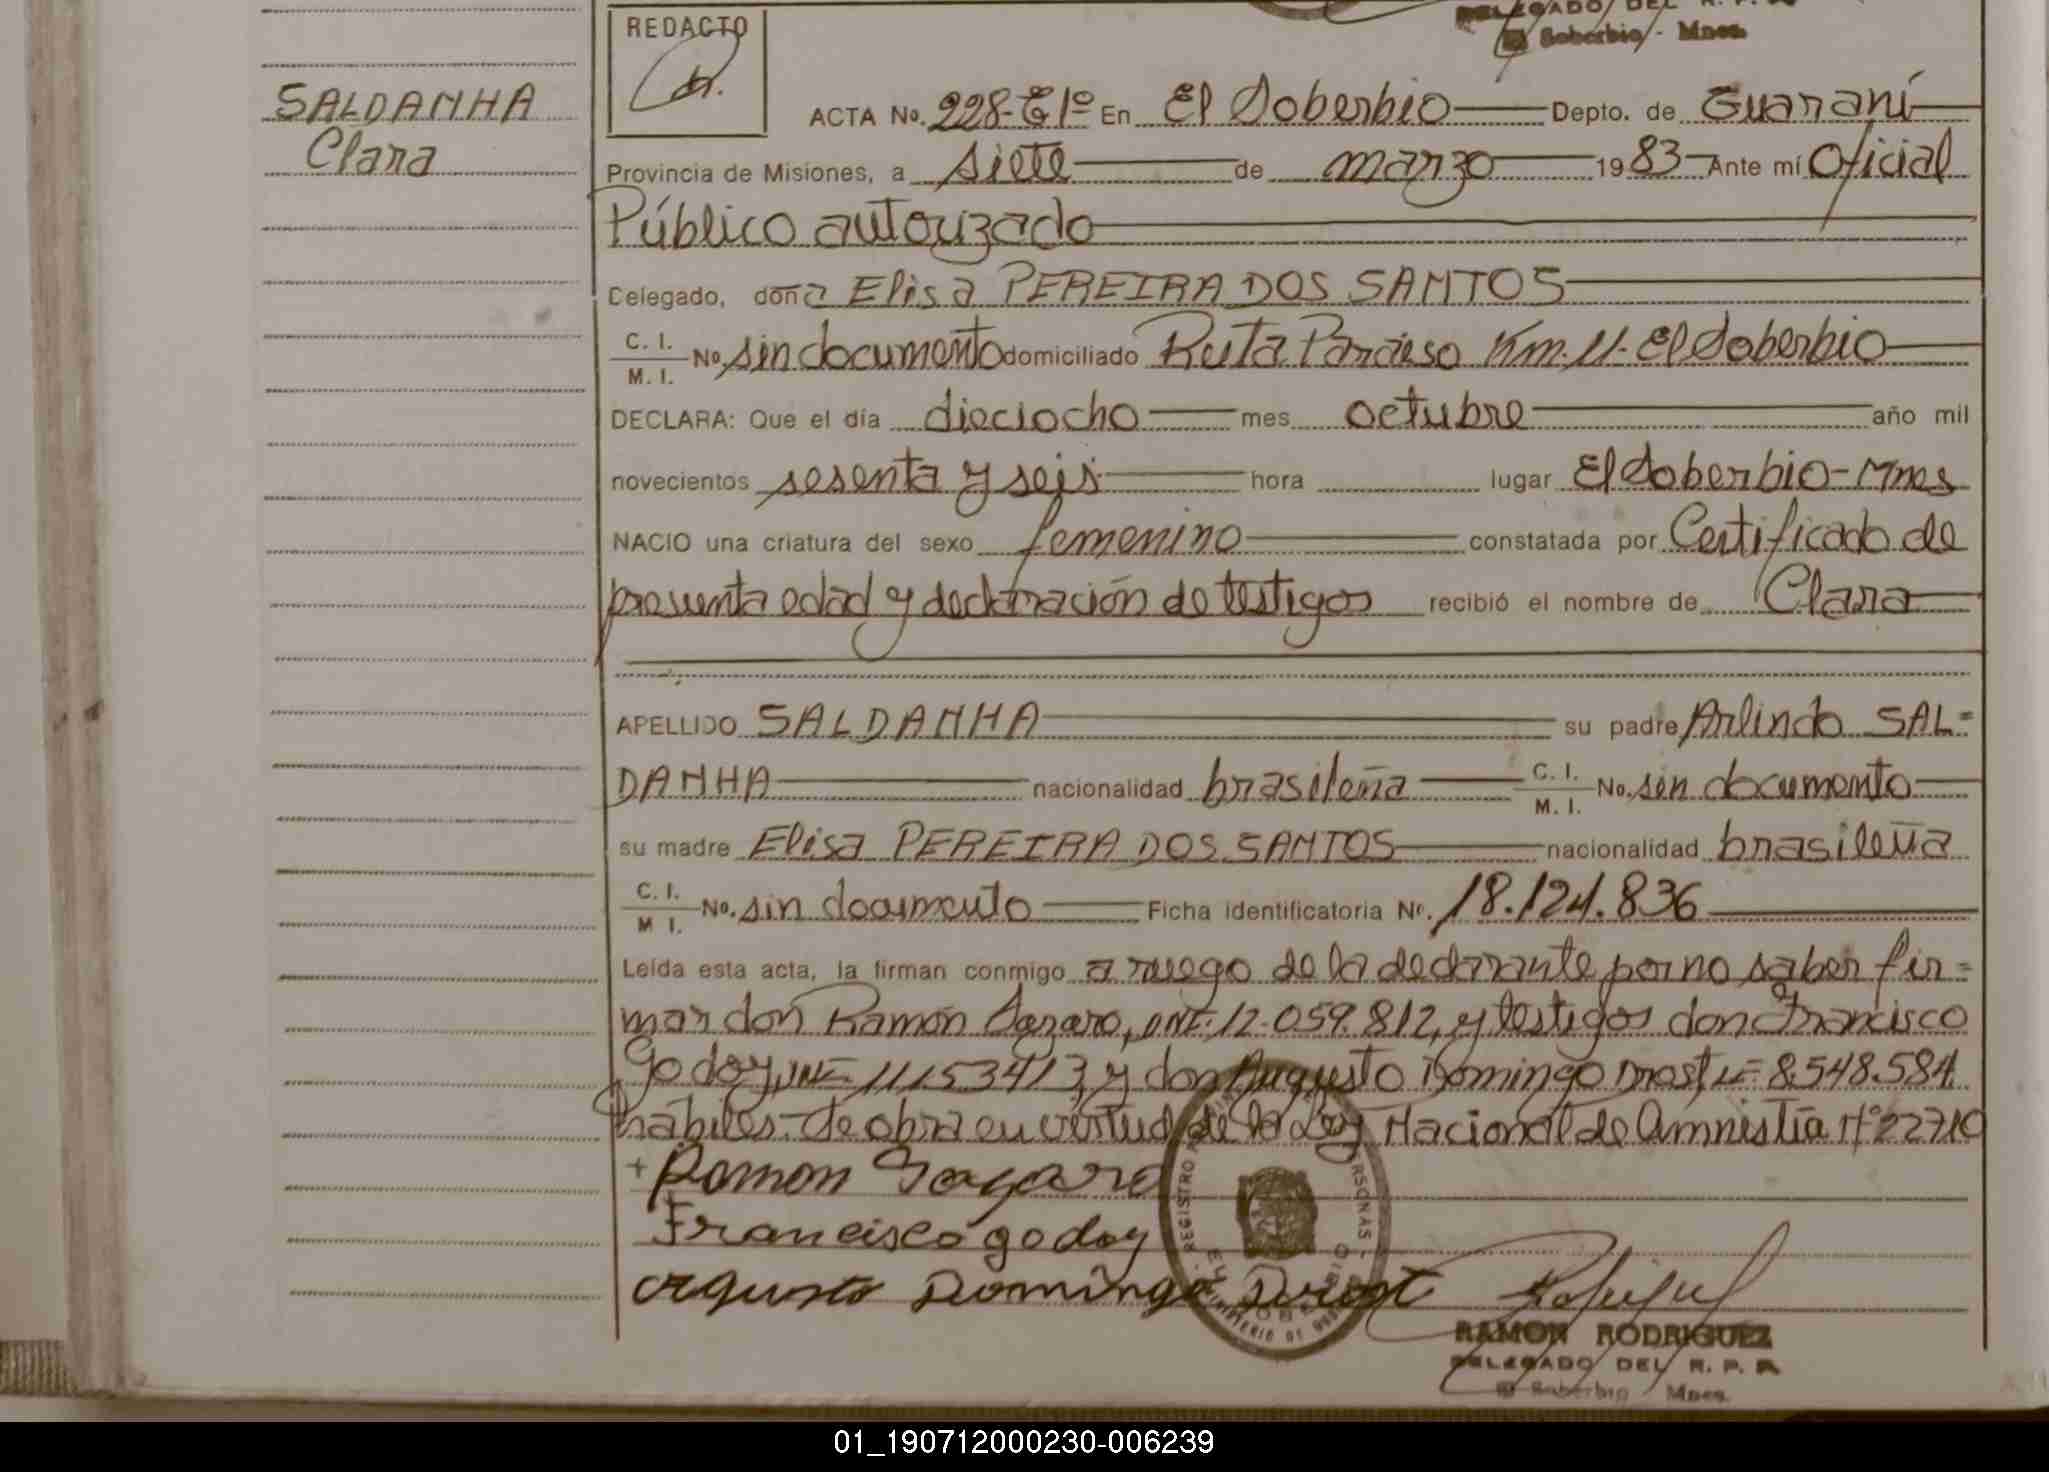 DELEGADO DEL R. P. P.
El Soberbio - Mnes.
REDACTO
SALDANHA
Clara
ACTA No. 228-E1º En El Soberbio Depto. de Guaraní
Provincia de Misiones, a siete de marzo 1983 Ante mí Oficial
Público autorizado
Celegado, doña Elisa PEREIRA DOS SANTOS
C. I.
M. I. No. sin documento domiciliado Ruta Paraiso Km. 11. El Soberbio
DECLARA: Que el día dieciocho mes octubre año mil
novecientos sesenta y seis hora lugar El Soberbio-Mnes
NACIO una criatura del sexo femenino constatada por Certificado de
presunta edad y declaración de testigos recibió el nombre de Clara
APELLIDO SALDANHA su padre Arlindo SAL=
DANHA nacionalidad brasileña C. I. M. I. No. sin documento
su madre Elisa PEREIRA DOS SANTOS nacionalidad brasileña
C. I. M I. No. sin documento Ficha identificatoria No. 18.124.836
Leída esta acta, la firman conmigo a ruego de la declarante por no saber fir=
mar don Ramón DNI. 12.059.812, y testigos don Francisco
Godoy, 11153413, y don Augusto Domingo Drost LE 8.548.584
hábiles. Se obra en virtud de la Ley Nacional de Amnistia Nº 22710
+ Ramon
Francisco godoy
Agusto Domingo Drost
REGISTRO
RAMON RODRIGUEZ
DELEGADO DEL R. P. P.
El Soberbio Mnes.
01_190712000230-006239